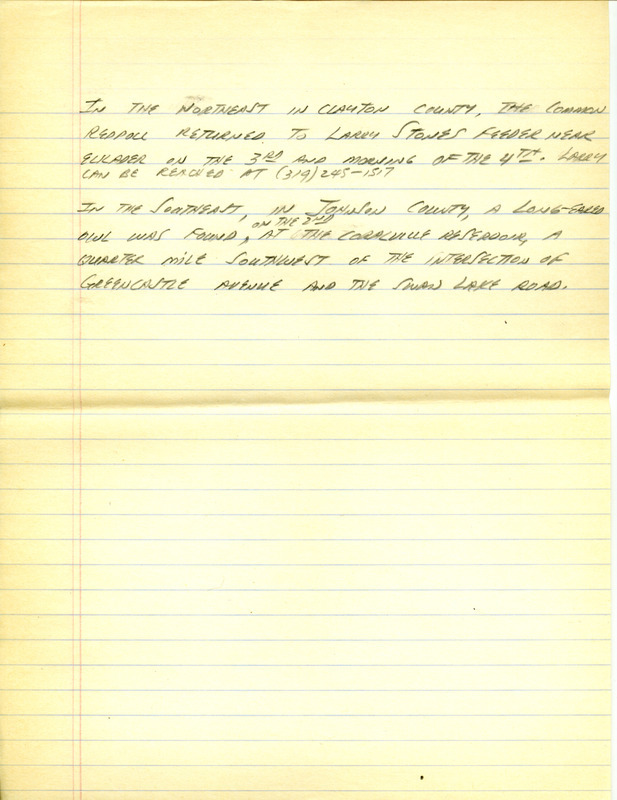 IN THE NORTHEAST IN CLAYTON COUNTY, THE COMMON
REDPOLL RETURNED TO LARRY STONES FEEDER NEAR
ELKADER ON THE 3RD AND MORNING OF THE 4TH. LARRY
CAN BE REACHED AT (319) 245-1517
IN THE SOUTHEAST, IN JOHNSON COUNTY, A LONG-EARED
ON THE 2ND
OWL WAS FOUND, AT THE CORALVILLE RESERVOIR, A
QUARTER MILE SOUTHWEST OF THE INTERSECTION OF
GREENCASTLE AVENUE AND THE SWAN LAKE ROAD.